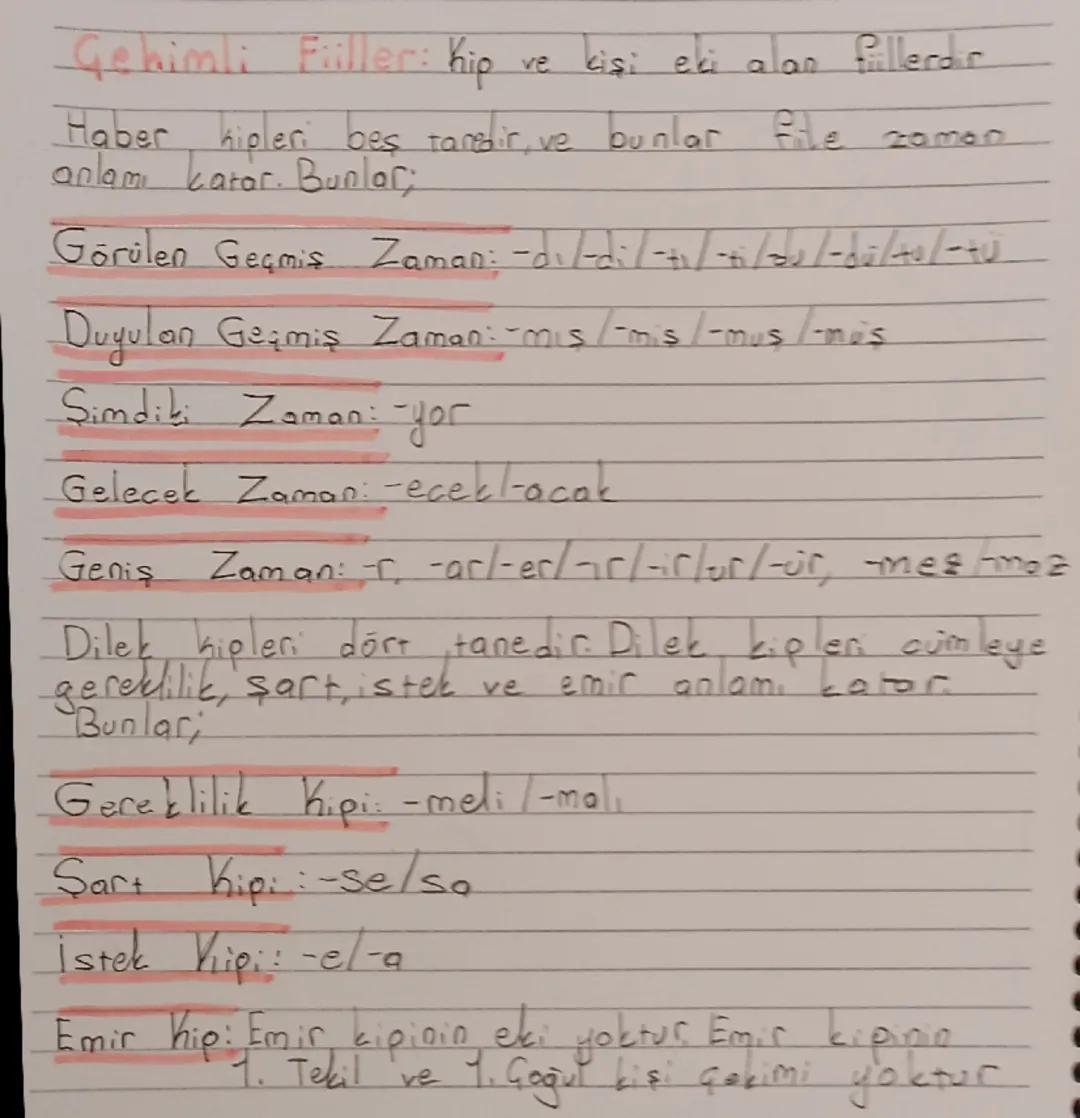 Çekimli Fiiller: Kip ve kişi eki alan fiillerdir
Haber kipleri beş tanedir, ve bunlar fiile zaman
anlamı katar. Bunlar;
Görülen Geçmiş Zaman: -dı/-di/-tı/-ti/du/-dü/tu/-tü
Duyulan Geçmiş Zaman: -mış/-miş/-muş/-müş
Şimdiki Zaman: -yor
Gelecek Zaman: -ecek/-acak
Geniş Zaman: -r, -ar/-er/-ır/-ir/ur/-ür, -mez/-maz
Dilek kipleri dört tanedir. Dilek kipleri cümleye
gereklilik, şart, istek ve emir anlamı katar.
Bunlar;
Gereklilik Kipi: -meli/-malı
Şart Kipi: -se/sa
İstek Kipi: -e/-a
Emir Kip: Emir kipinin eki yoktur. Emir kipinin
1. Tekil ve 1. Çoğul kişi çekimi yoktur